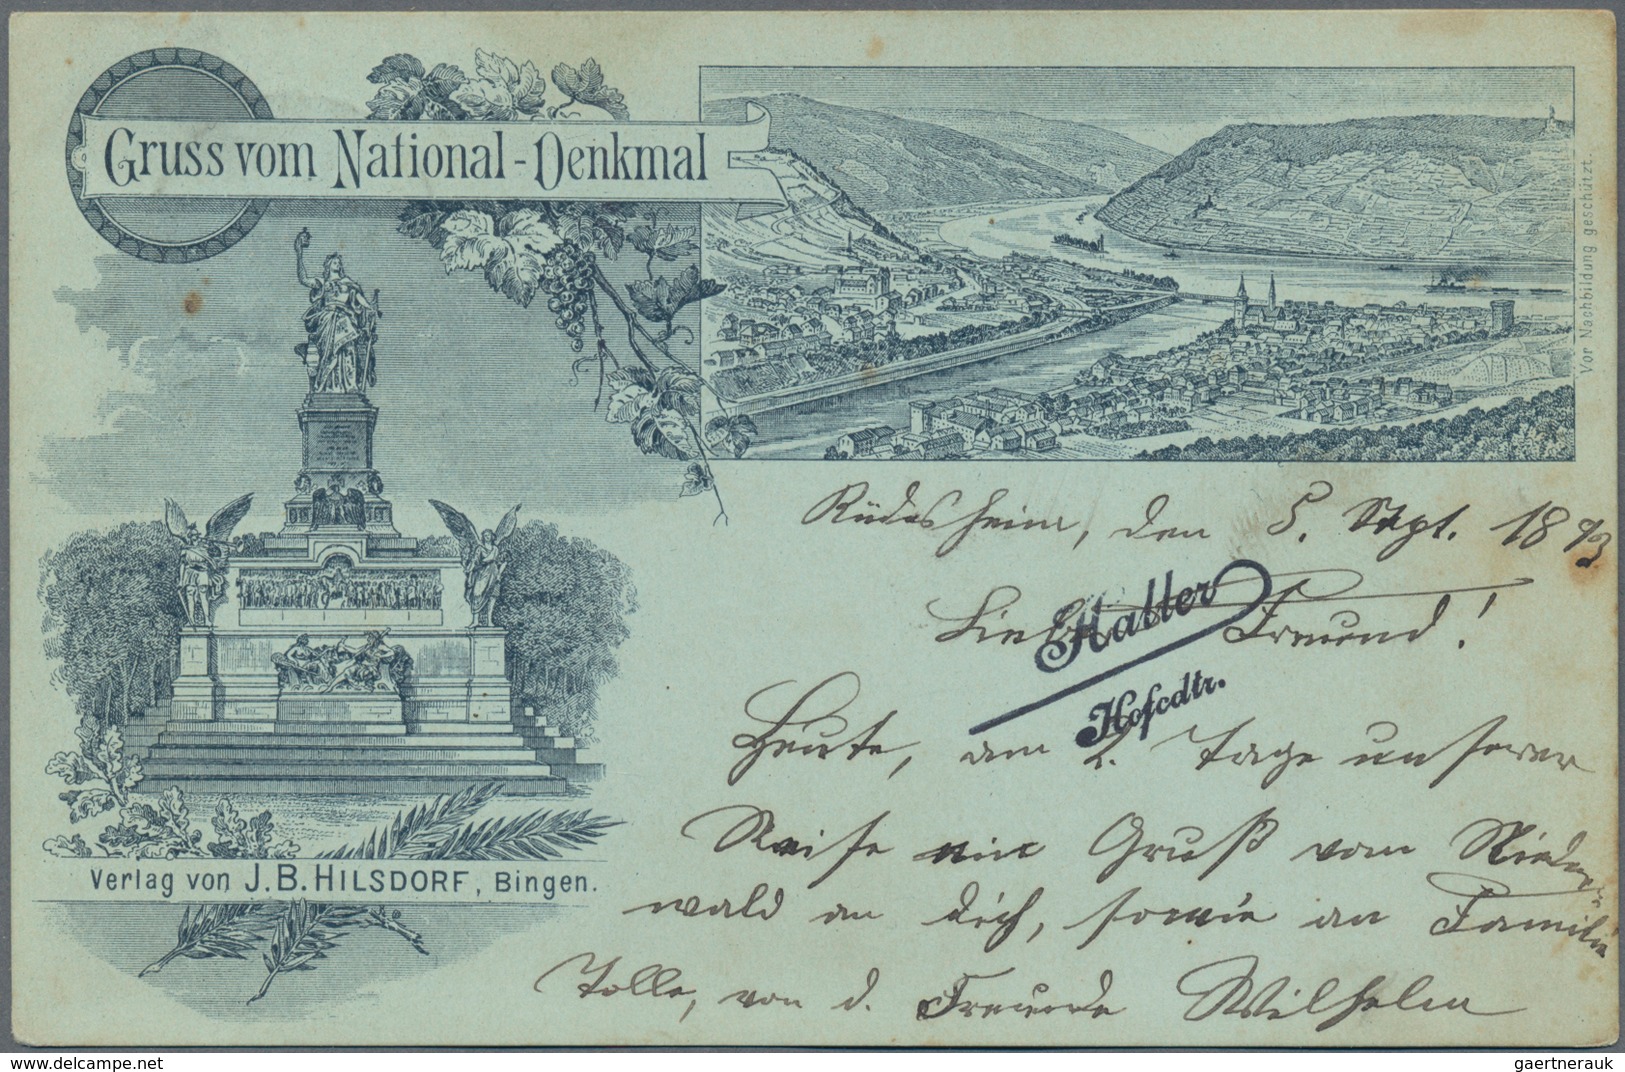 Gruss vom National-Denkmal
Vor Nachbildung geschützt.
Rüdesheim, den 5. Sept. 1893
Lieber Freund!
Haller
Hofcdtr.
Heute, am 2. Tage unserer
Reise ein Gruß vom Nieder-
wald an dich, sowie an Familie
Tolle, von d. Freunde Wilhelm
Verlag von J. B. HILSDORF, Bingen.
www.delcampe.net
gaertnerauk